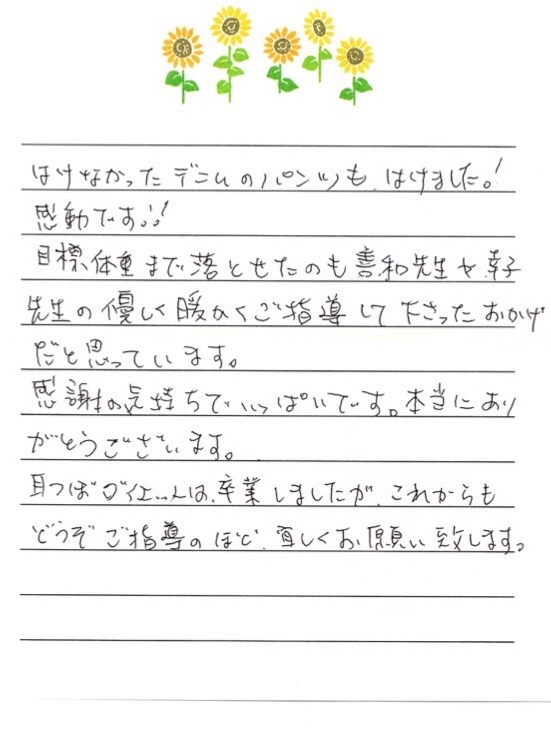 はけなかったデニムのパンツも、はけました。!
感動です!!
目標体重まで落とせたのも善和先生や幸子
先生の優しく暖かくご指導して下さったおかげ
だと思っています。
感謝の気持ちでいっぱいです。本当にあり
がとうございます。
耳つぼダイエットは、卒業しましたが、これからも
どうぞご指導のほど、宜しくお願い致します。